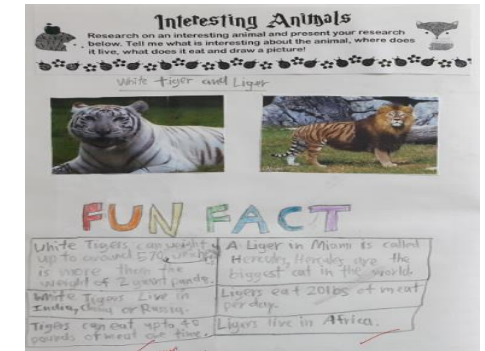 Interesting Animals
Research on an interesting animal and present your research
below. Tell me what is interesting about the animal, where does
it live, what does it eat and draw a picture!
White tiger and Liger
FUN FACT
White Tigers, can weight
up to around 570
is more than the
weight of 2 giant panda.
White Tigers Live in
India, or Russia.
Tigers can eat up to 40
pounds of meat one time.
A Liger in Miami is called
Hercules, Hercules are the
biggest cat in the world.
Ligers eat 20lbs of meat
per day.
Ligers live in Africa.